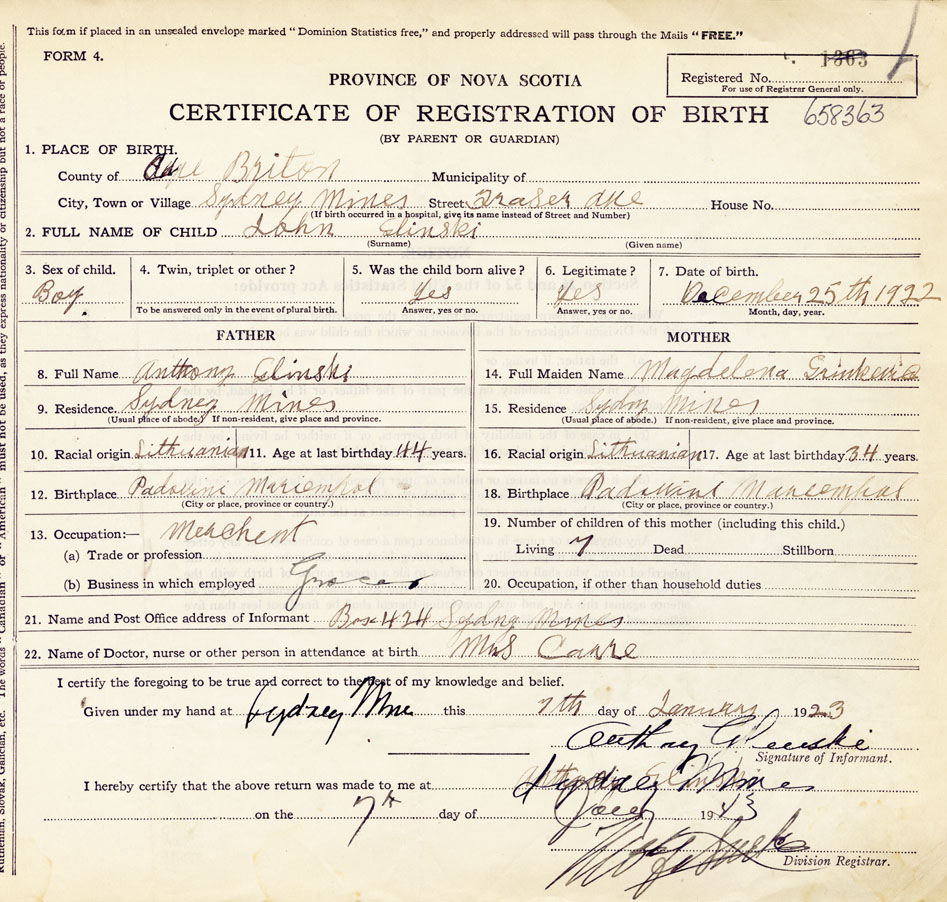 This form if placed in an unsealed envelope marked "Dominion Statistics free," and properly addressed will pass through the Mails "FREE."
FORM 4.
1363
PROVINCE OF NOVA SCOTIA
Registered No.
For use of Registrar General only.
CERTIFICATE OF REGISTRATION OF BIRTH 658363
(BY PARENT OR GUARDIAN)
1. PLACE OF BIRTH.
County of Cape Briton Municipality of
City, Town or Village Sydney Mines Street Fraser Ave House No.
(If birth occurred in a hospital, give its name instead of Street and Number)
2. FULL NAME OF CHILD John Glinski
(Surname) (Given name)
3. Sex of child. 4. Twin, triplet or other? 5. Was the child born alive? 6. Legitimate? 7. Date of birth.
Boy Yes Yes December 25th 1922
To be answered only in the event of plural birth. Answer, yes or no. Answer, yes or no. Month, day, year.
FATHER MOTHER
8. Full Name Anthony Glinski 14. Full Maiden Name Magdelena
9. Residence Sydney Mines 15. Residence Sydny Mines
(Usual place of abode.) If non-resident, give place and province. (Usual place of abode.) If non-resident, give place and province.
10. Racial origin Lithuanian 11. Age at last birthday 44 years. 16. Racial origin Lithuanian 17. Age at last birthday 34 years.
12. Birthplace 18. Birthplace
(City or place, province or country.) (City or place, province or country.)
13. Occupation:— Merchent 19. Number of children of this mother (including this child.)
(a) Trade or profession Living 7 Dead Stillborn
(b) Business in which employed Grocer 20. Occupation, if other than household duties
21. Name and Post Office address of Informant Box 424 Sydny Mines
22. Name of Doctor, nurse or other person in attendance at birth Mrs
I certify the foregoing to be true and correct to the best of my knowledge and belief.
Given under my hand at Sydney Mines this 7th day of January 1923
Anthony Glinski
Signature of Informant.
I hereby certify that the above return was made to me at Sydney Mines
on the 7th day of Jany 1923
Division Registrar.
Ruthenian, Slovak, Galician, etc. The words "Canadian" or "American" must not be used, as they express nationality or citizenship but not a race or people.